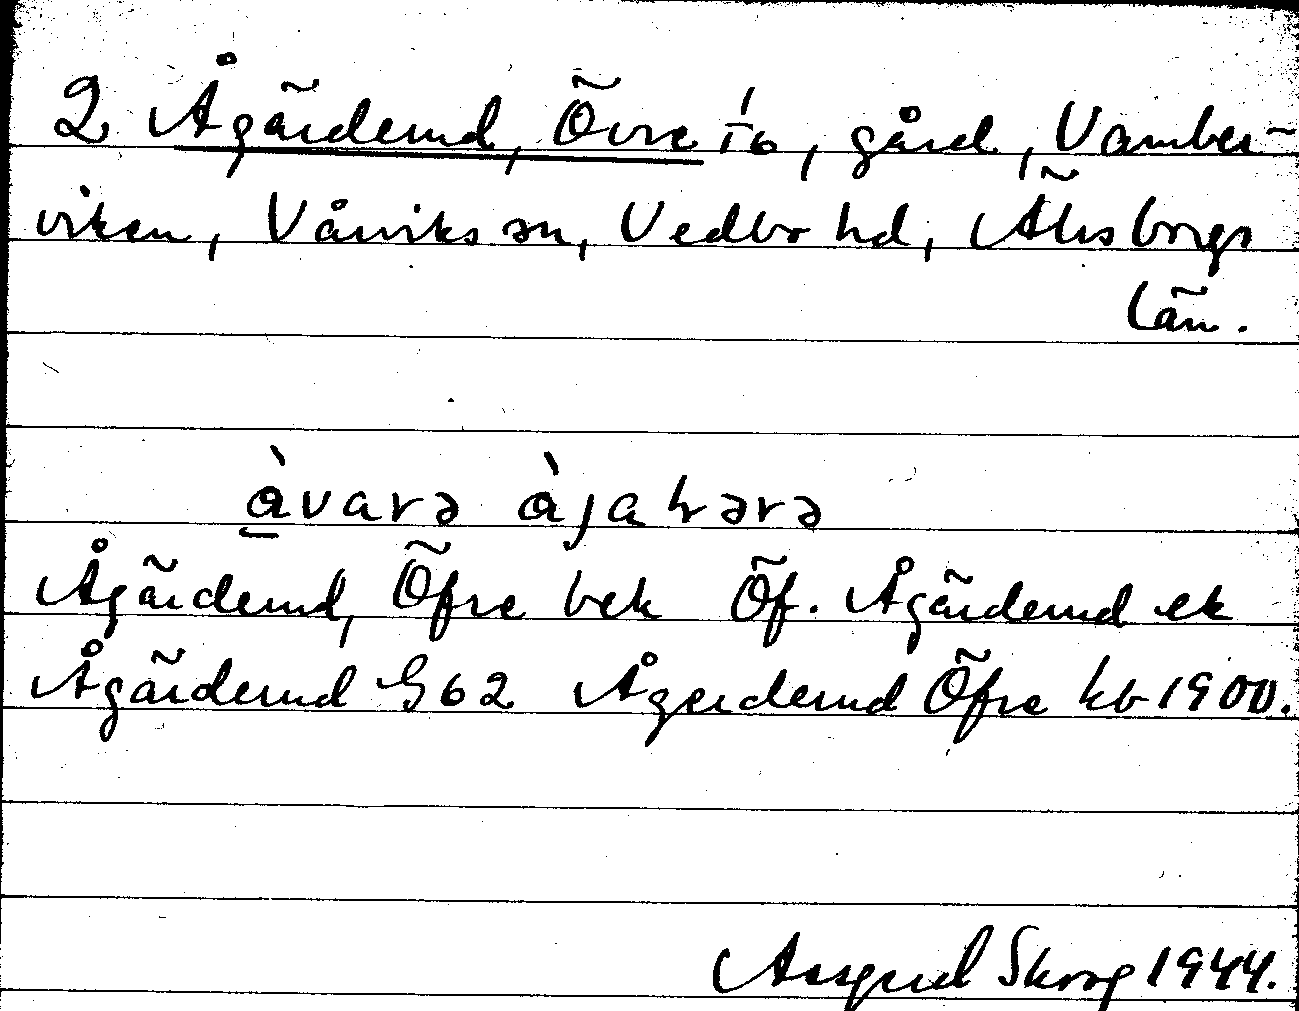 2 Ågärdemd, Övre 1/16, gård, Vamber-
viken, Vårviks sn, Vedbo hd, Älvsborgs
län.
àvarə àjahərə
Ågärdemd, Öfre bek Öf. Ågärdemd ek
Ågärdemd G62 Ågerdemd Öfre kb 1900.
Assgerd Skoog 1944.